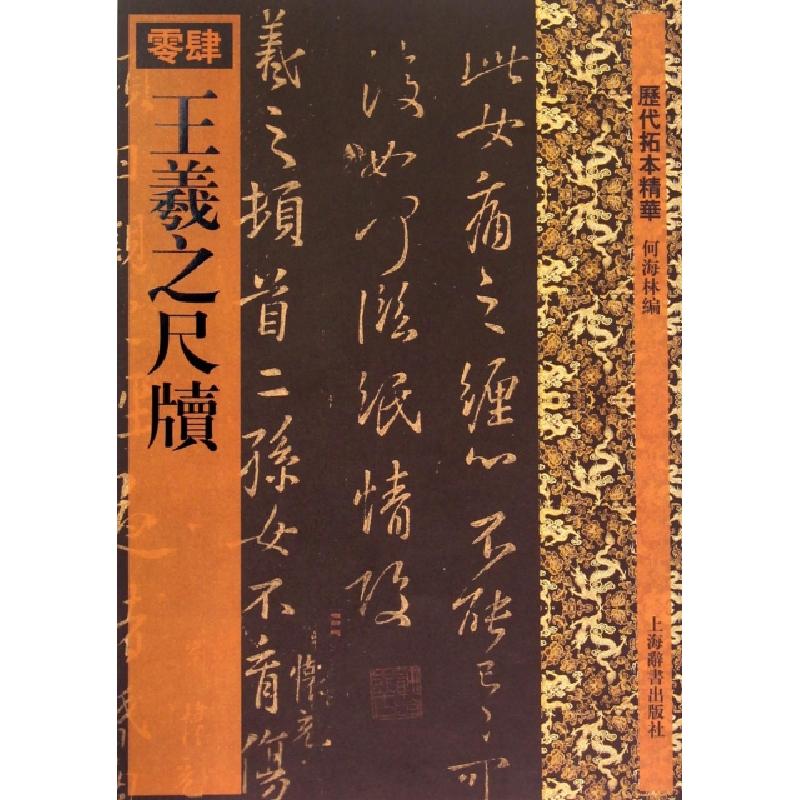 歷代拓本精華
何海林编
上海辭書出版社
此女痛之纏心不能已已可
復如何臨紙情酸
羲之頓首二孫女不育傷
懷充
零肆
王羲之尺牘